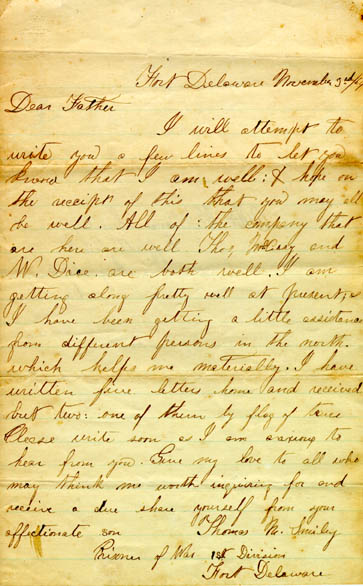 Fort Delaware November 3rd/64
Dear Father
I will attempt to
write you a few lines to let you
know that I am well: & hope on
the receipt of this that you may all
be well. All of: the company that
are here are well Thos, and
W. Dice. are both well. I am
getting along pretty well at present,
I have been getting a little assistance
from different persons in the north.
which helps me materially. I have
written five letters home and received
but two: one of them by flag of truce
Please write soon as I am anxious to
hear from you. Give my love to all who
may think me worth inquiring for and
receive a due share yourself from your
affectionate son Thomas M. Smiley
Prisoner of War 1st Division
Fort Delaware